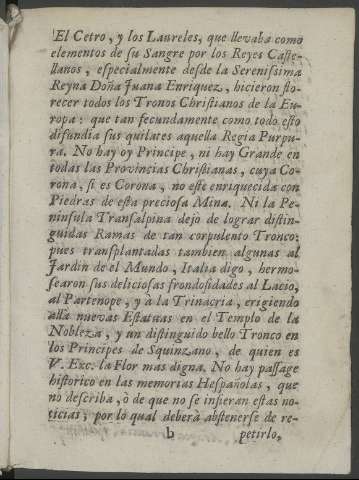 El Cetro, y los Laureles, que llevaba como
elementos de su Sangre por los Reyes Caste-
llanos, especialmente desde la Serenissima
Reyna Doña Juana Enriquez, hicieron flo-
recer todos los Tronos Christianos de la Eu-
ropa: que tan fecundamente como todo esto
difundia sus quilates aquella Regia Purpu-
ra. No hay oy Principe, ni hay Grande en
todas las Provincias Christianas, cuya Co-
rona, si es Corona, no estè enriquecida con
Piedras de esta preciosa Mina. Ni la Pe-
ninsula Transalpina dejo de lograr distin-
guidas Ramas de tan corpulento Tronco;
pues transplantadas tambien algunas al
Jardin de el Mundo, Italia digo, hermo-
searon sus deliciosas frondosidades al Lacio,
al Partenope, y à la Trinacria, erigiendo
allà nuevas Estatuas en el Templo de la
Nobleza, y un distinguido bello Tronco en
los Principes de Squinzano, de quien es
V. Exc. la Flor mas digna. No hay passage
historico en las memorias Hespañolas, que
no describa, ò de que no se infieran estas no-
ticias; por lo qual deberà abstenerse de re-
b petirlo,